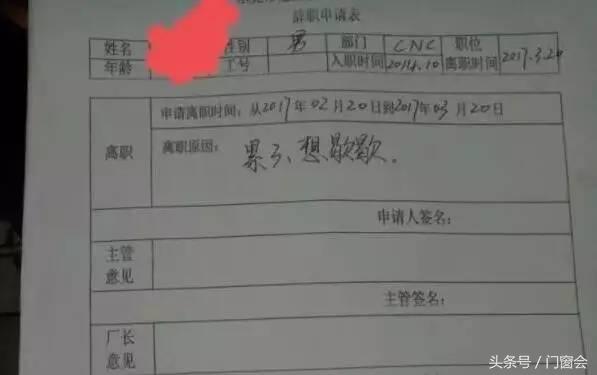 辞职申请表
姓名 性别 男 部门 CNC 职位
年龄 工号 入职时间 2014.10 离职时间 2017.3.20
申请离职时间：从2017年02月20日到2017年03月20日
离职 离职原因： 累了、想歇歇.
申请人签名：
主管
意见
主管签名：
厂长
意见
头条号／门窗会